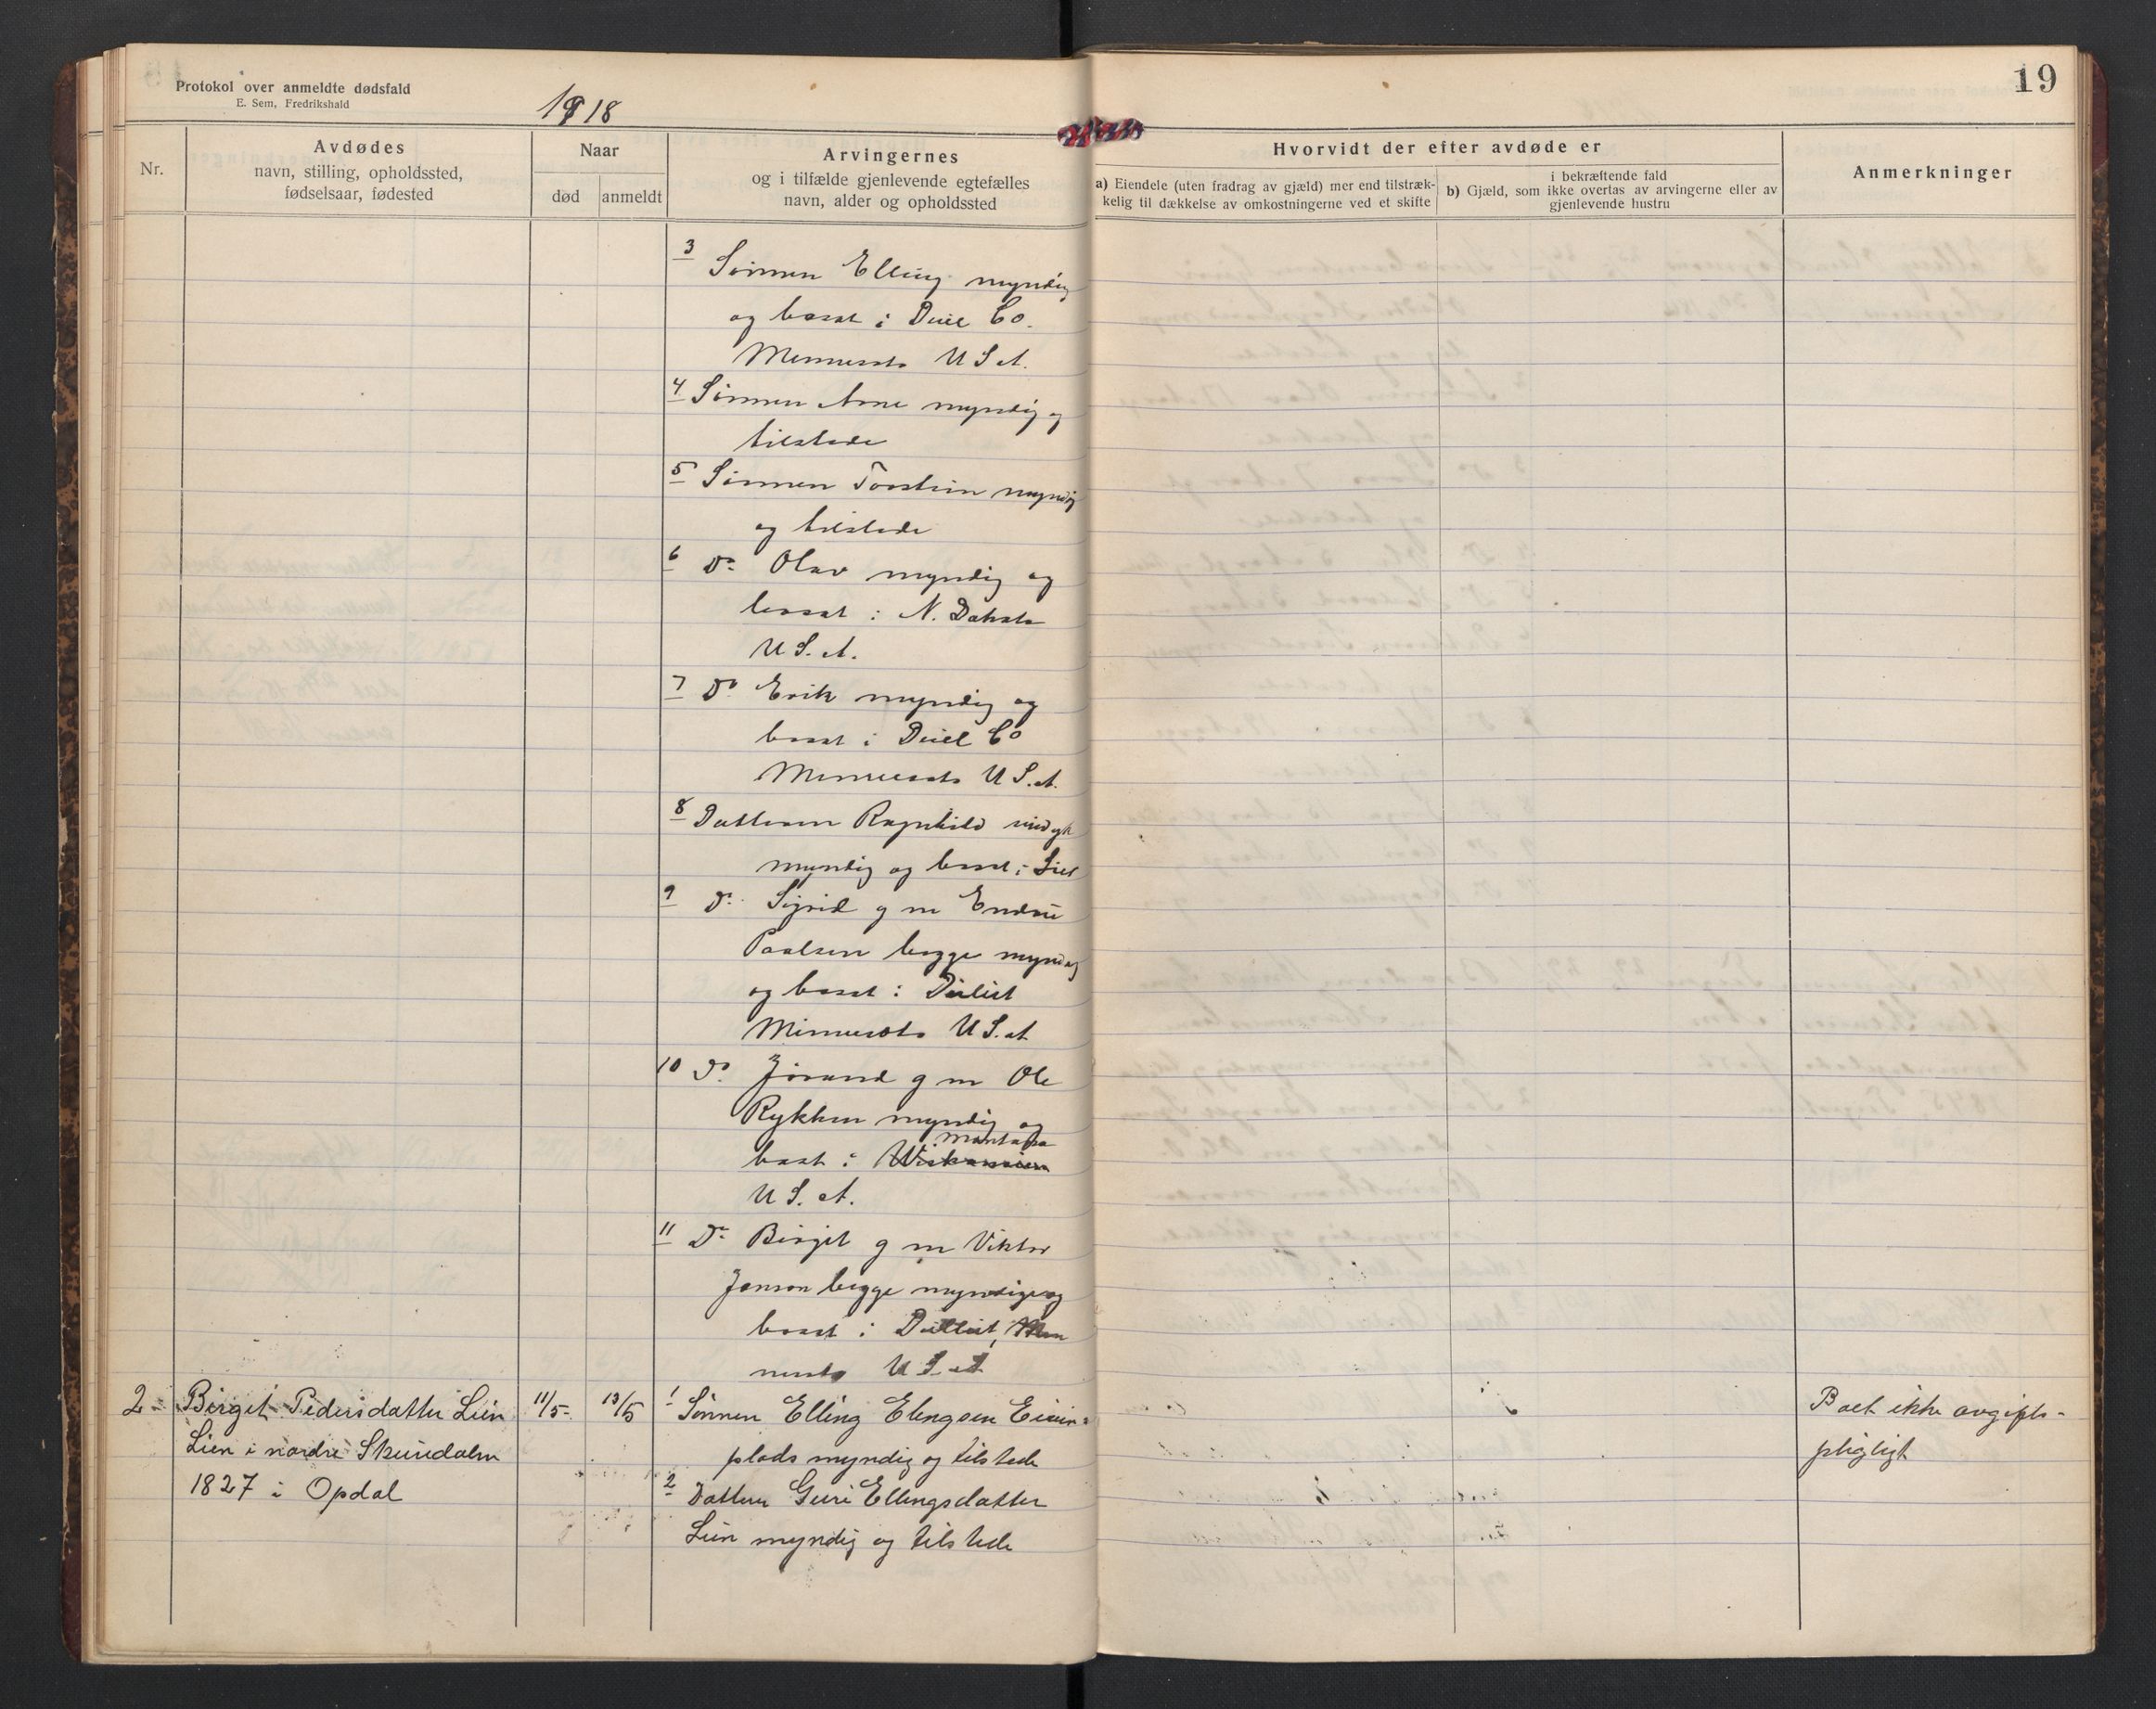 Protokol over anmeldte dødsfald
E. Sem, Fredrikshald
1918
19
Nr.
Avdødes
navn, stilling, opholdssted,
fødselsaar, fødested
Naar
død
anmeldt
Arvingernes
og i tilfælde gjenlevende egtefælles
navn, alder og opholdssted
Hvorvidt der efter avdøde er
a) Eiendele (uten fradrag av gjæld) mer end tilstræk-
kelig til dækkelse av omkostningerne ved et skifte
i bekræftende fald
b) Gjæld, som ikke overtas av arvingerne eller av
gjenlevende hustru
Anmerkninger
3 Sønnen Elling myndig
og bosat i Duel Co.
Minnesota U S A.
4 Sønnen Arne myndig og
tilstede
5 Sønnen Torstein myndig
og tilstede
6 Do Olav myndig og
bosat i N. Dakota
U S. A.
7 Do Erik myndig og
bosat i Duel Co
Minnesota U S. A.
8 Datteren Ragnhild
myndig og bosat i
9 Do Sigrid g m
Paulsen begge myndig
og bosat i
Minnesota U S. A
10 Do Jørand g m Ole
Rykken myndig og
Montana
bosat i
U S. A.
11 Do Birgit g m Viktor
Jonson begge myndige og
bosat i
nesota U S A
2 Birget Pedersdatter Lien
Lien i nordre Skurdalen
1827 i Opdal
11/5
13/5
1 Sønnen Elling Elingsen
plads myndig og tilstede
2 Datteren Guri Ellingsdatter
Lien myndig og tilstede
Boet ikke avgifts-
pligtigt